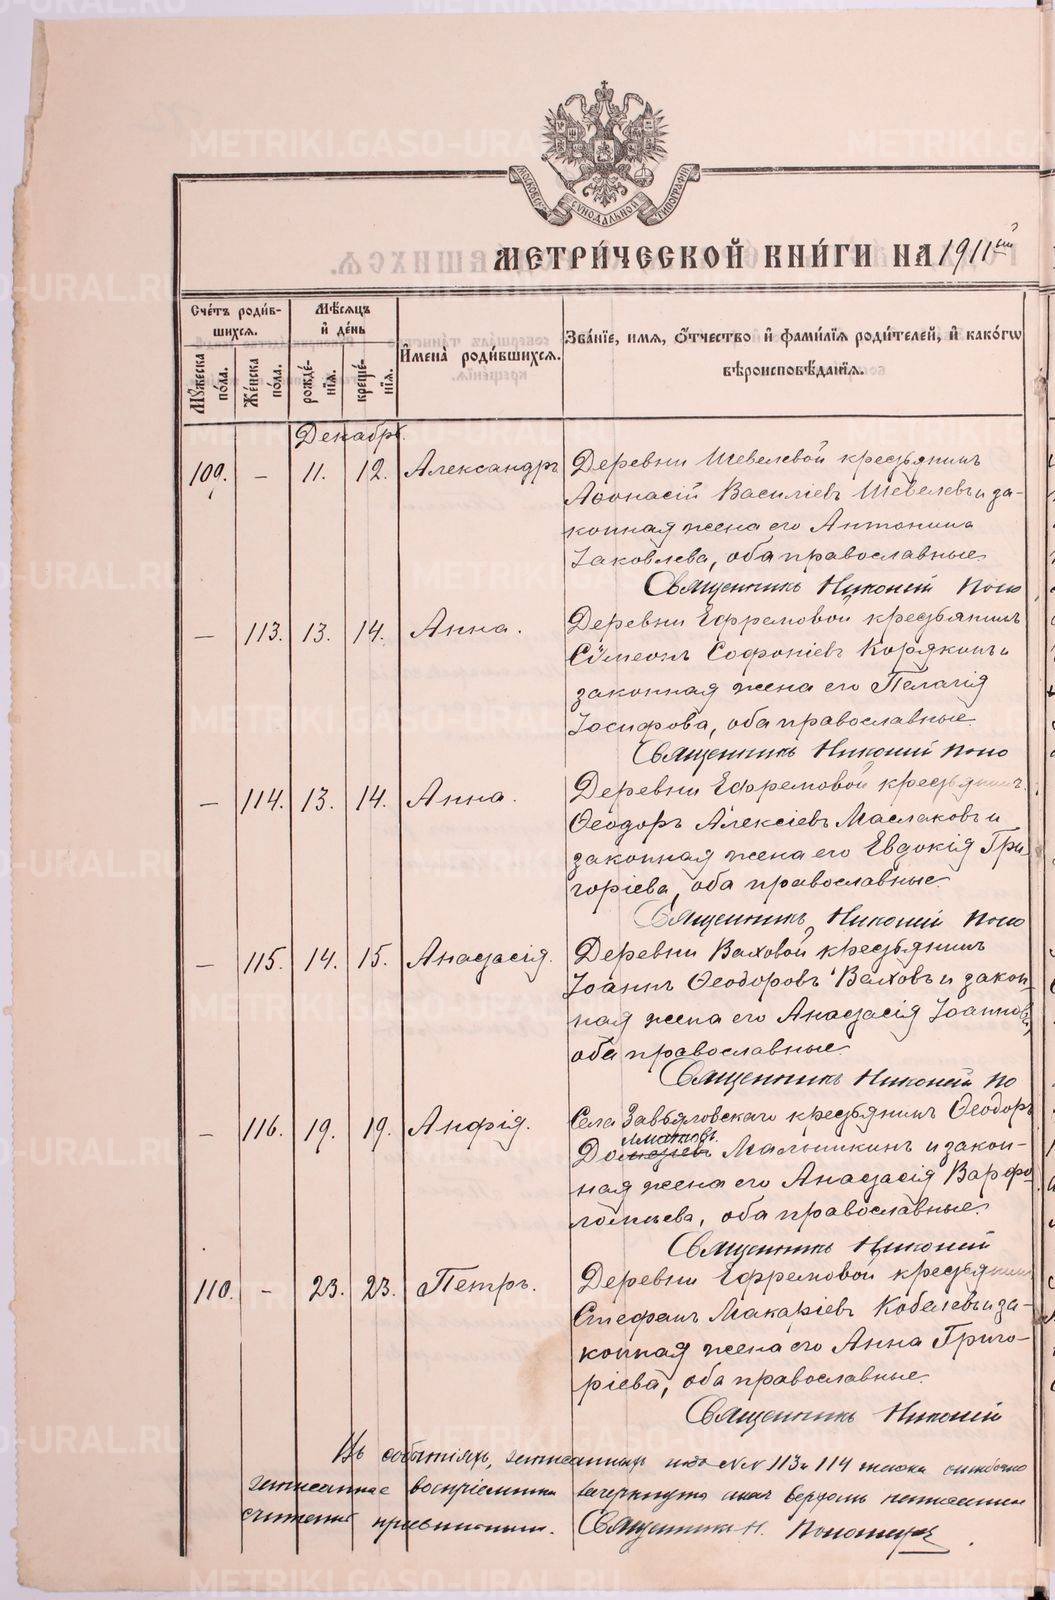 МОСКОВСК. СУНОДАЛЬНОЙ ТИПОГРАФІИ
МЕТРИ́ЧЕСКОЙ КНИ́ГИ НА 1911ый
Сче́тъ роди́вшихся.
Мѣ́сяцъ и де́нь
Мꙋ́жеска по́ла.
Же́нска по́ла.
рожде́нїя.
креще́нїя.
И҆мена̀ роди́вшихся.
Зва́нїе, имя, ѻ҆́тчество и҆ фами́лїя роди́телей, и҆ како́гѡ
вѣроисповѣ́данїя.
Декабрь.
109. – 11. 12. Александръ Деревни Шевелевой крестьянинъ
Аѳонасій Василіевъ Шевелевъ и за-
конная жена его Антонина
Іаковлева, оба православные.
Священникъ Никоній Поно
– 113. 13. 14. Анна. Деревни Ефремовой крестьянинъ
Сѵмеонъ Софоніевъ Корякинъ и
законная жена его Пелагія
Іосифова, оба православные.
Священникъ Никоній Поно
– 114. 13. 14. Анна. Деревни Ефремовой крестьянинъ
Ѳеодоръ Алексіевъ Маслаковъ и
законная жена его Евдокія Гри-
горіева, оба православные.
Священникъ Никоній Поно
– 115. 14. 15. Анастасія. Деревни Ваховой крестьянинъ
Іоаннъ Ѳеодоровъ Ваховъ и закон-
ная жена его Анастасія Іоаннова,
оба православные.
Священникъ Никоній По
– 116. 19. 19. Анфія. Села Завьяловскаго крестьянинъ Ѳеодоръ
лматовъ
До Малышкинъ и закон-
ная жена его Анастасія Варфо-
ломеева, оба православные.
Священникъ Никоній
110. – 23. 23. Петръ. Деревни Ефремовой крестьянинъ
Стефанъ Макаріевъ Кобелевъ и за-
конная жена его Анна Григо-
ріева, оба православные.
Священникъ Никоній
Въ событіяхъ, записанныхъ подъ №№ 113 и 114 ошибочно
записанное воспріемника зачеркнуто
считать правильнымъ. Священникъ Н. Пономарев